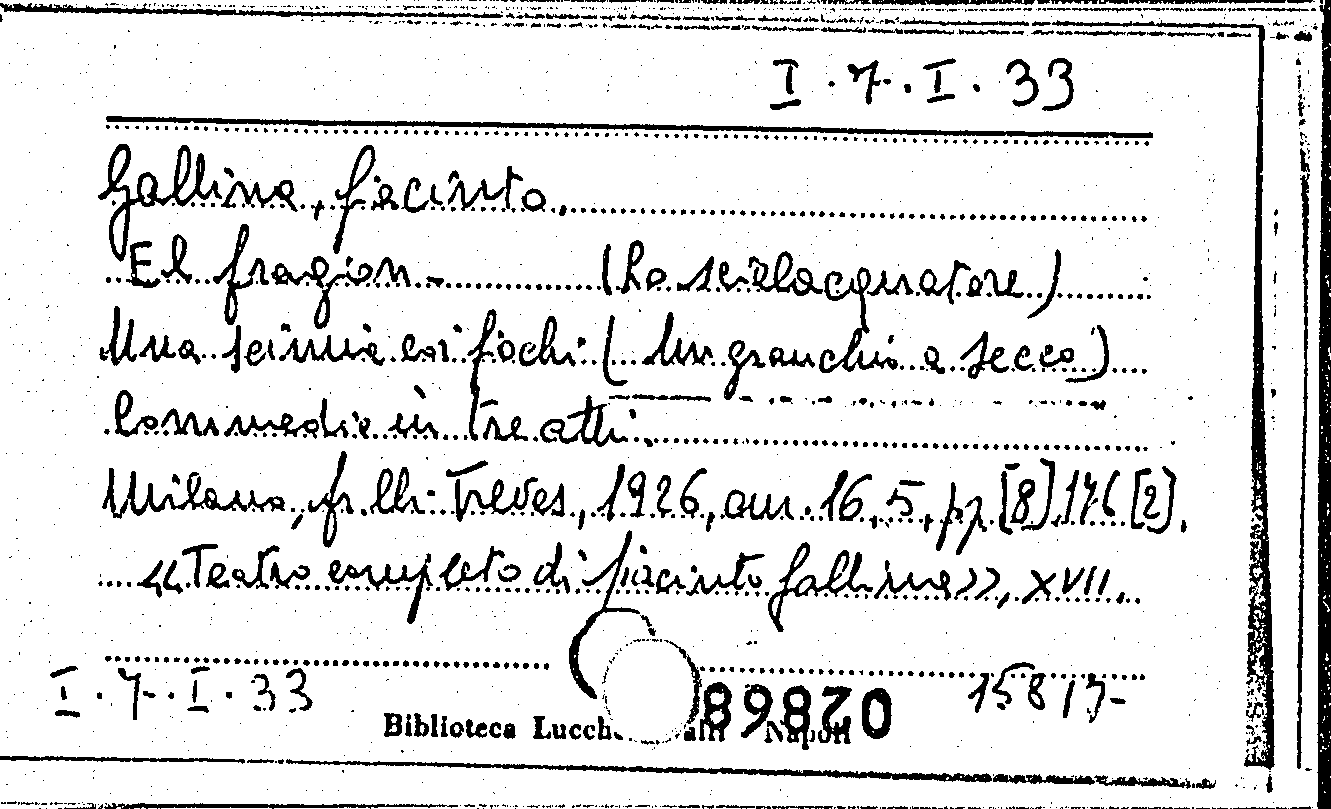 I.7.I.33
Gallina, Giacinto.
El fragion - (Lo scialacquatore)
Una scimia coi fiochi (Un granchio a secco)
Commedie in tre atti.
Milano, fr.lli Treves, 1926, cm. 16,5, pp. [8] 176 [2].
«Teatro completo di Giacinto Gallina», XVII.
I.7.I.33
15817
Biblioteca Napoli